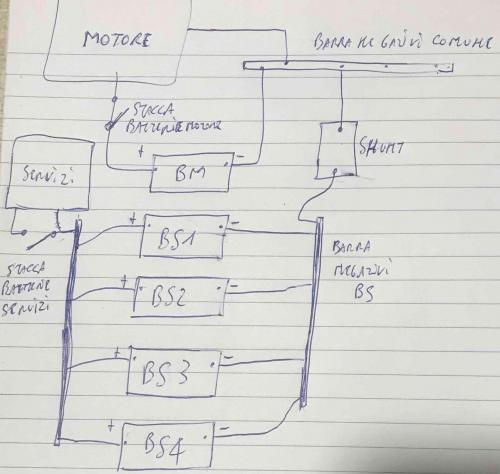 MOTORE
BARRA NEGATIVI COMUNE
STACCA
BATTERIE MOTORE
+ BM -
SHUNT
SERVIZI
+ BS1 -
STACCA
BATTERIE
SERVIZI
BARRA
NEGATIVI
BS
+ BS2 -
+ BS3 -
+ BS4 -